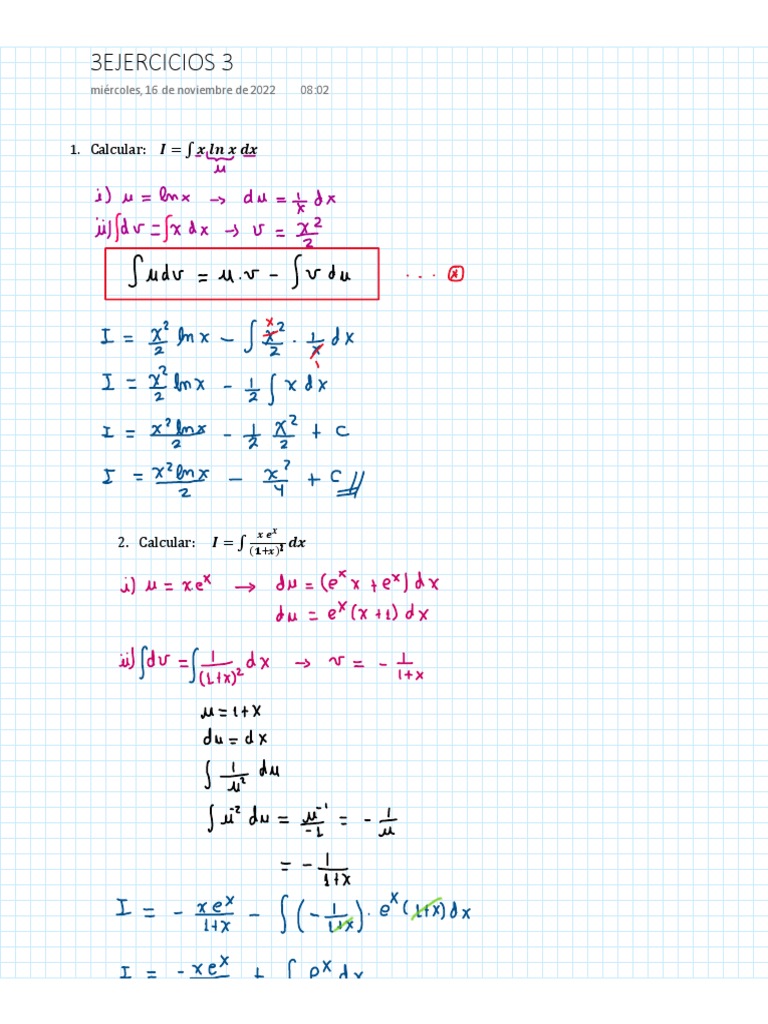 3EJERCICIOS 3
miércoles, 16 de noviembre de 2022 08:02
1. Calcular: I = ∫ x ln x dx
μ
i) μ = ln x → dμ = 1/x dx
ii) ∫dv = ∫x dx → v = x²/2
∫ μdv = μ.v − ∫ v dμ ... (*)
I = x²/2 ln x − ∫ x²/2 · 1/x dx
I = x²/2 ln x − 1/2 ∫ x dx
I = x² ln x/2 − 1/2 x²/2 + C
I = x² ln x/2 − x²/4 + C //
2. Calcular: I = ∫ x eˣ/(1+x)² dx
i) μ = x eˣ → dμ = (eˣ x + eˣ) dx
dμ = eˣ (x + 1) dx
ii) ∫dv = ∫ 1/(1+x)² dx → v = − 1/1+x
μ = 1+x
dμ = dx
∫ 1/μ² dμ
∫ μ⁻² dμ = μ⁻¹/−1 = − 1/μ
= − 1/1+x
I = − x eˣ/1+x − ∫ (− 1/1+x) · eˣ (1+x) dx
I = − x eˣ + ∫ eˣ dx